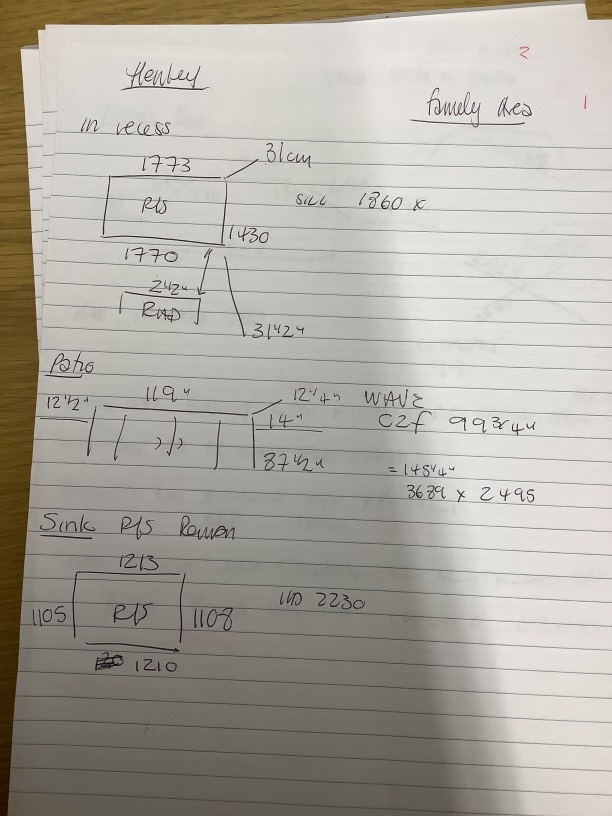 2
Henley
Family Area
1
In recess
1773
31cm
R/S
SILL 1860 x
1430
1770
242"
RAD
31 1/2"
Patio
12 1/2"
119"
12 1/4"
WAVE
14"
C2f 99 3/4"
87 1/2"
= 145 1/4"
3689 x 2495
Sink R/S Roman
1213
1105
R/S
1108
1210